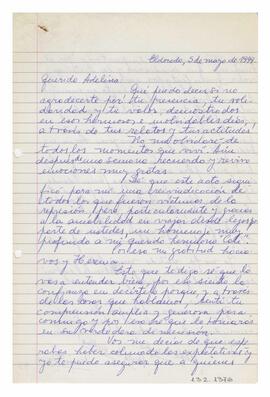 Eldorado, 5 de mayo de 1999
Querida Adelina:
Qué puedo decirte sino
agradecerte por tu presencia, tu soli-
daridad y tu valor, demostrados
en esos hermosos e inolvidables días,
a través de tus relatos y tus actitudes.
No me olvidaré de
todos los momentos que viví. Aún
después de una semana recuerdo y revivo
emociones muy gratas.
Sé que este acto signi-
ficó para mí una reivindicación de
todos los que fueron víctimas de la
represión, pero particularmente y gracias
a la sensibilidad en mayor
parte de ustedes, un homenaje muy
profundo a mi querido hermano
mi gratitud hacia
vos y
Esto que te digo sé que lo
vas a entender bien, por eso siento la
confianza en decírtelo porque y a través
de las cosas que hablamos, sentí tu
comprensión amplia y generosa para
conmigo y por eso sé que lo tomarás
en su verdadera dimensión.
Vos me decías de que espe-
rabas haber colmado las expectativas y
yo te puedo asegurar que a quienes
132.1376